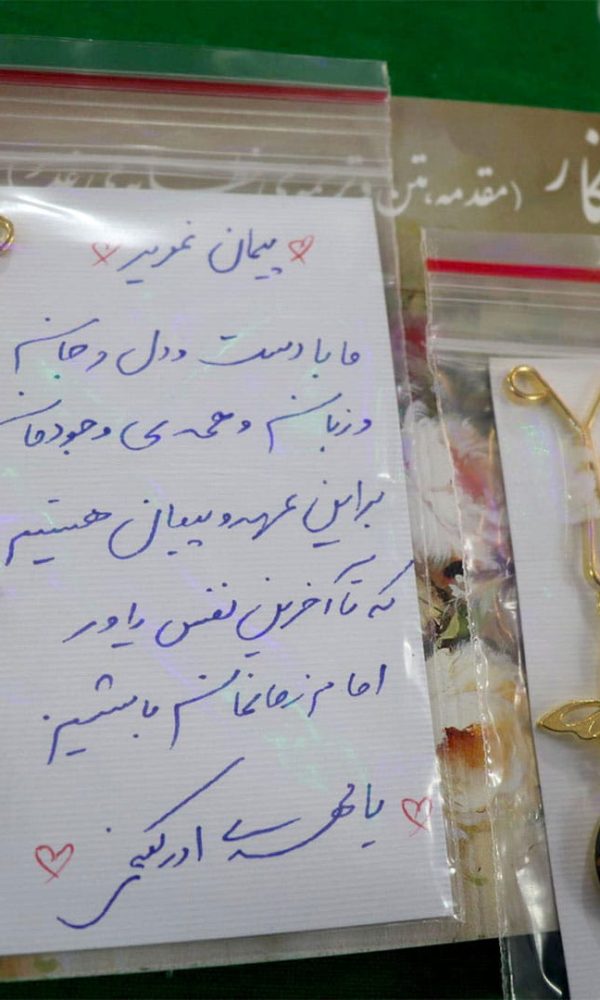 نگار
(مقدمه، متن و ترجمه‌ی خطابه‌ی غدیر)
پیمان غدیر
ما با دست و دل و جان
و زبان و همه ی وجودمان
بر این عهد و پیمان هستیم
که تا آخرین نفس یاور
امام زمانمان باشیم
یا مهدی ادرکنی